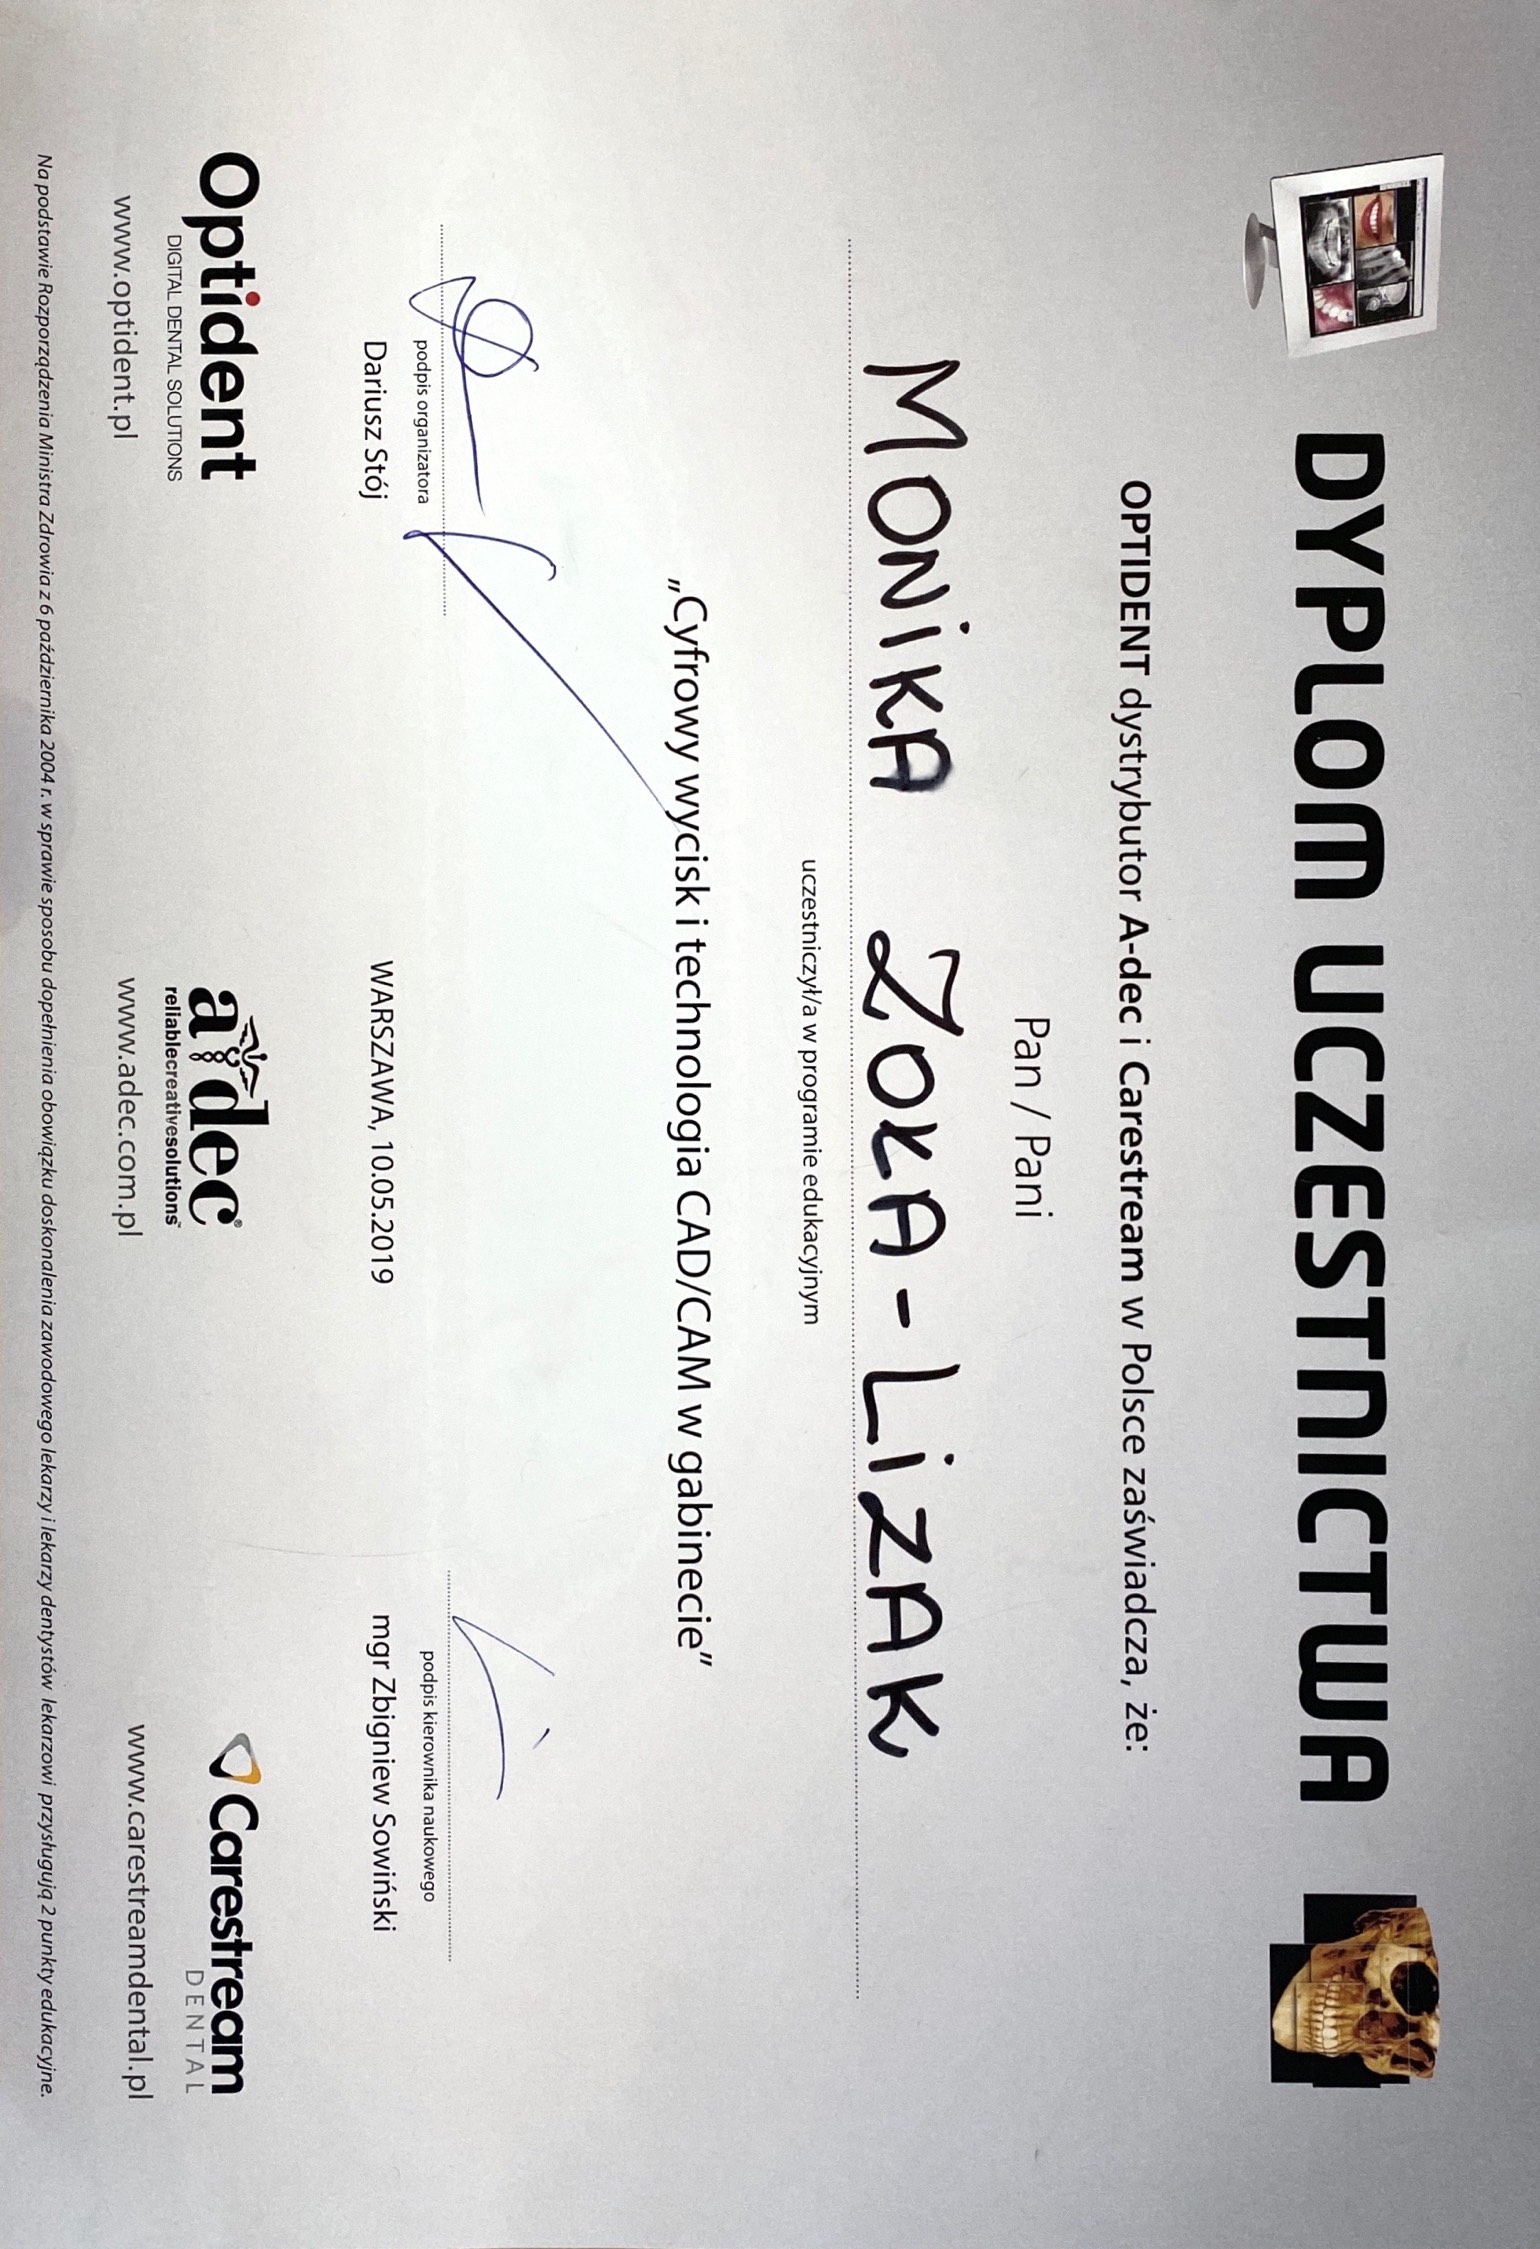 DYPLOM UCZESTNICTWA
OPTIDENT dystrybutor A-dec i Carestream w Polsce zaświadcza, że:
Pan / Pani
MONIKA ZOŁA-LIZAK
uczestniczył/a w programie edukacyjnym
„Cyfrowy wycisk i technologia CAD/CAM w gabinecie”
podpis organizatora
Dariusz Stój
WARSZAWA, 10.05.2019
podpis kierownika naukowego
mgr Zbigniew Sowiński
Optident
DIGITAL DENTAL SOLUTIONS
www.optident.pl
a dec®
reliablecreativesolutions™
www.adec.com.pl
Carestream
DENTAL
www.carestreamdental.pl
Na podstawie Rozporządzenia Ministra Zdrowia z 6 października 2004 r. w sprawie sposobu dopełnienia obowiązku doskonalenia zawodowego lekarzy i lekarzy dentystów lekarzowi przysługują 2 punkty edukacyjne.